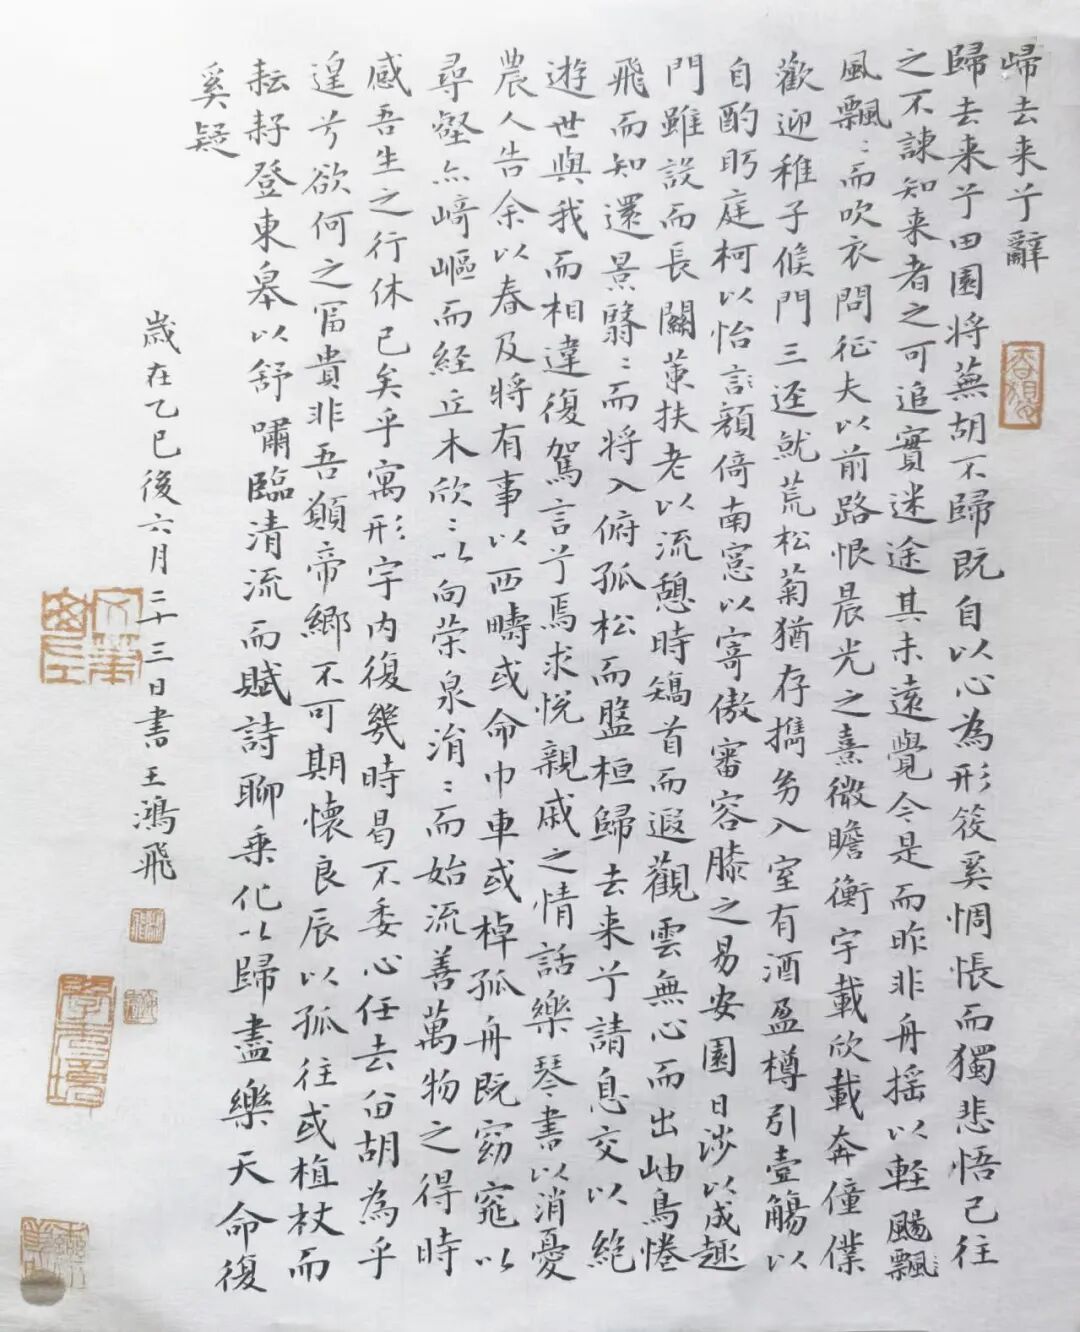 歸去来兮辭
歸去来兮田園将蕪胡不歸既自以心為形役奚惆悵而獨悲悟已往
之不諫知来者之可追實迷途其未遠覺今是而昨非舟揺以軽颺飄
風飄：而吹衣問征夫以前路恨晨光之熹微瞻衡宇載欣載奔僮僕
歡迎稚子候門三逕就荒松菊猶存携㓜入室有酒盈樽引壺觴以
自酌眄庭柯以怡顔倚南窓以寄傲審容膝之易安園日渉以成趣
門雖設而長關策扶老以流憩時矯首而遐觀雲無心而出岫鳥惓
飛而知還景翳：而将入俯孤松而盤桓歸去来兮請息交以絶
遊世與我而相違復駕言兮焉求悦親戚之情話樂琴書以消憂
農人告余以春及将有事以西疇或命巾車或棹孤舟既窈窕以
尋壑亦崎嶇而経丘木欣：以向荣泉涓：而始流善萬物之得時
感吾生之行休已矣乎寓形宇内復幾時曷不委心任去留胡為乎
遑兮欲何之冨貴非吾願帝鄉不可期懷良辰以孤往或植杖而
耘耔登東皋以舒嘯臨清流而賦詩聊乗化以歸盡樂天命復
奚疑
歲在乙巳後六月二十三日書王鴻飛